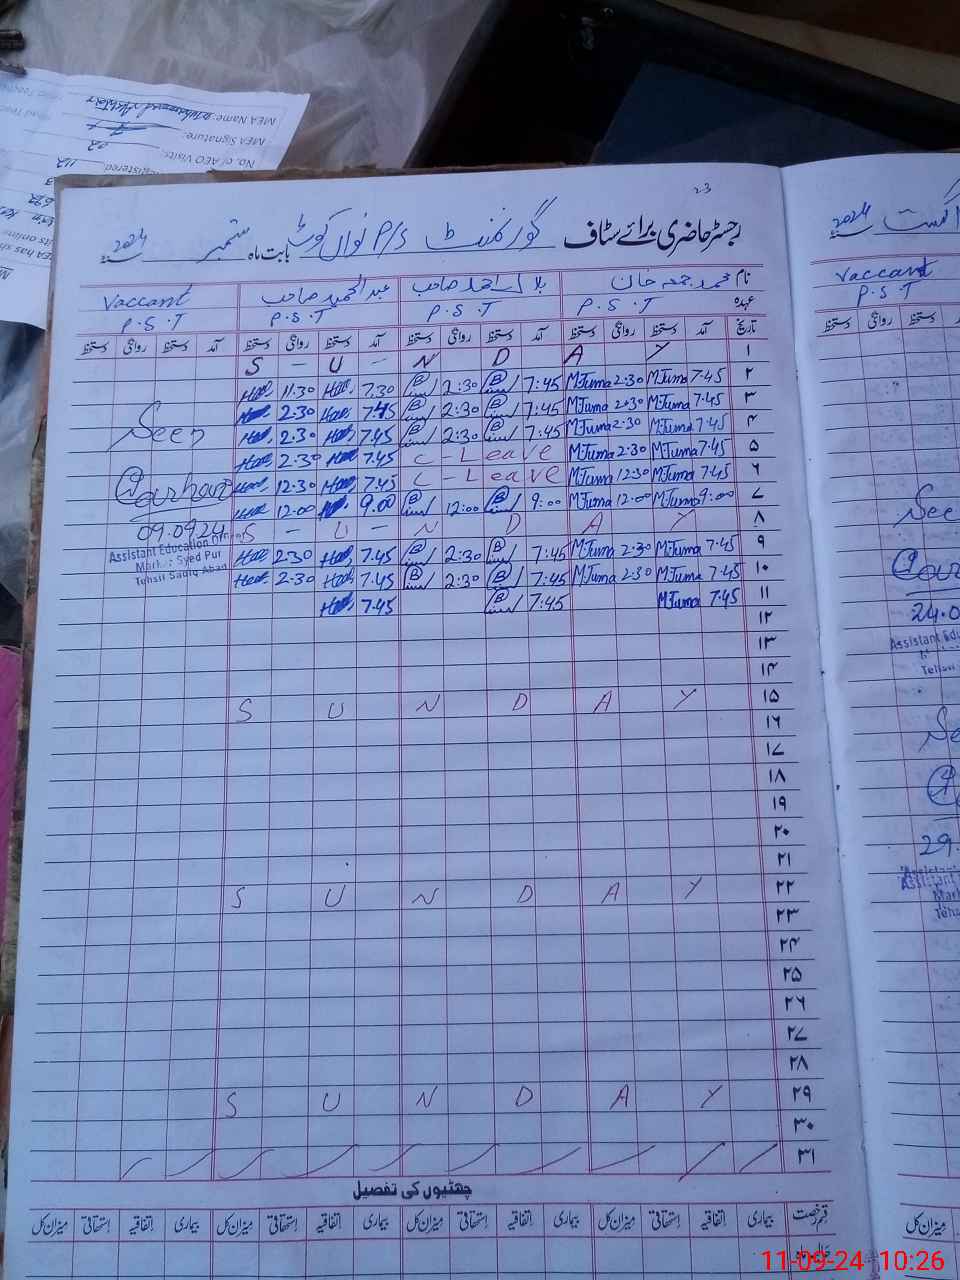 MEA Name: Muhammad
MEA Signature:
No. of AEO Visits: 22
Registered 112
23
رجسٹر حاضری برائے سٹاف گورنمنٹ P/S نواں کوٹ بابت ماہ ستمبر سنہ 2024
نام محمد جمعہ خان بلال احمد صاحب عبدالحمید صاحب Vaccant
عہدہ P.S.T P.S.T P.S.T P.S.T
تاریخ آمد دستخط روانگی دستخط آمد دستخط روانگی دستخط آمد دستخط روانگی دستخط آمد دستخط روانگی دستخط
S - U - N D A Y ۱
11:30 7.30 2:30 7:45 M.Juma 2:30 M.Juma 7.45 ۲
2.30 7.45 2:30 7:45 M.Juma 2:30 M.Juma 7.45 ۳
2.30 7.45 2:30 7:45 M.Juma 2:30 M.Juma 7.45 ۴
2.30 7.45 C - Leave M.Juma 2:30 M.Juma 7.45 ۵
12.30 7.45 C - Leave M.Juma 12:30 M.Juma 7.45 ۶
12:00 9.00 12:00 9:00 M.Juma 12:00 M.Juma 9:00 ۷
S - U - N D A Y ۸
2.30 7.45 2:30 7:45 M.Juma 2:30 M.Juma 7.45 ۹
2.30 7.45 2:30 7:45 M.Juma 2:30 M.Juma 7.45 ۱۰
7.45 7:45 M.Juma 7.45 ۱۱
Seen
09.0924
Assistant Education Officer
Markaz Syed Pur
Tehsil Sadiq Abad
۱۲
۱۳
۱۴
S U N D A Y ۱۵
۱۶
۱۷
۱۸
۱۹
۲۰
۲۱
S U N D A Y ۲۲
۲۳
۲۴
۲۵
۲۶
۲۷
۲۸
S U N D A Y ۲۹
۳۰
۳۱
چھٹیوں کی تفصیل
قسم رخصت بیماری اتفاقیہ استحقاقی میزان کل بیماری اتفاقیہ استحقاقی میزان کل بیماری اتفاقیہ استحقاقی میزان کل
اگست سنہ 2024
Vaccant
P.S.T
دستخط روانگی دستخط
See
24.0
Assistant Edu
Tehsil
Se
29.
Assistant
Mark
Tehs
میزان کل
11-09-24 10:26